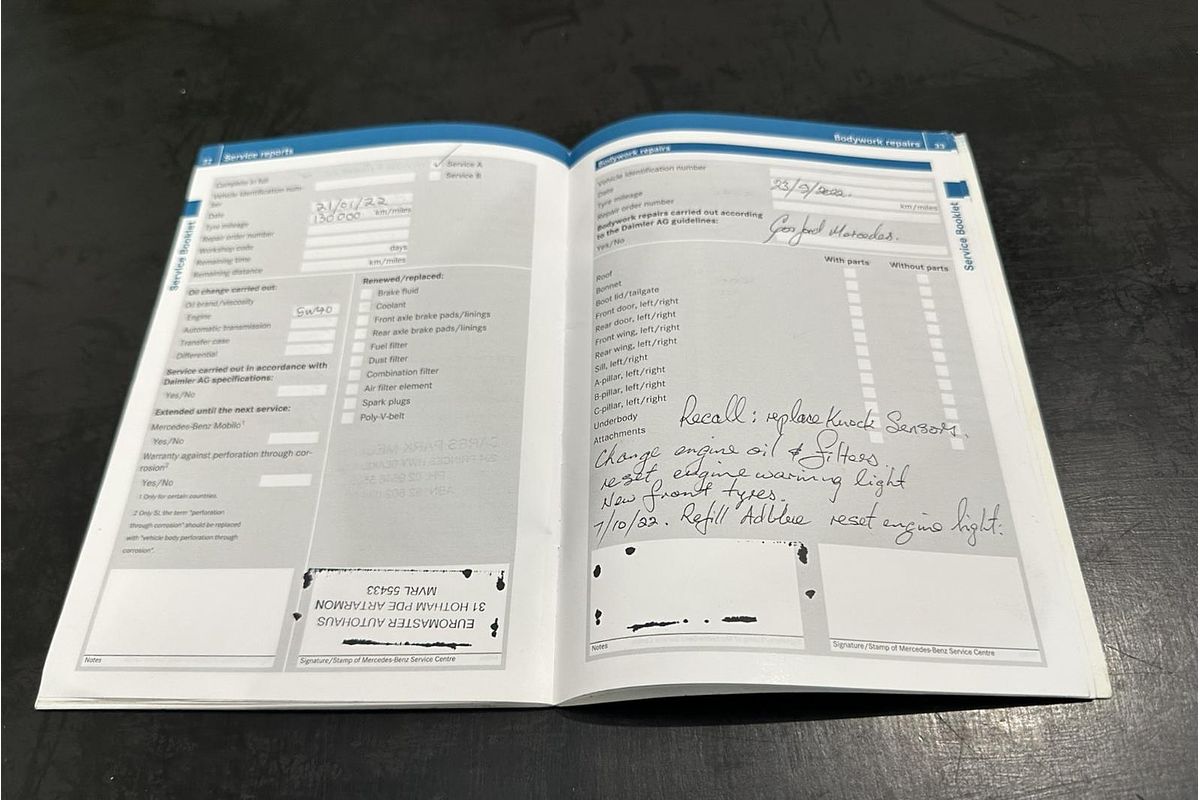 32 Service reports
Complete in full
Vehicle identification num-
ber
Date
Tyre mileage
Repair order number
Workshop code
Remaining time
Remaining distance
✓ Service A
Service B
21/01/22
130 000 km/miles
days
km/miles
Oil change carried out:
Oil brand/viscosity
Engine
5W40
Automatic transmission
Transfer case
Differential
Service carried out in accordance with
Daimler AG specifications:
Yes/No
Extended until the next service:
Mercedes-Benz Mobilo¹
Yes/No
Warranty against perforation through cor-
rosion²
Yes/No
1 Only for certain countries.
2 Only SI, the term "perforation
through corrosion" should be replaced
with "vehicle body perforation through
corrosion".
Renewed/replaced:
Brake fluid
Coolant
Front axle brake pads/linings
Rear axle brake pads/linings
Fuel filter
Dust filter
Combination filter
Air filter element
Spark plugs
Poly-V-belt
Notes
EUROMASTER AUTOHAUS
31 HOTHAM PDE ARTARMON
MVRL 55433
Signature/Stamp of Mercedes-Benz Service Centre
Service Booklet
Bodywork repairs 33
Bodywork repairs
Vehicle identification number
Date
Tyre mileage
Repair order number
23/9/2022.
km/miles
Bodywork repairs carried out according
to the Daimler AG guidelines:
Yes/No
Mercedes.
With parts
Without parts
Roof
Bonnet
Boot lid/tailgate
Front door, left/right
Rear door, left/right
Front wing, left/right
Rear wing, left/right
Sill, left/right
A-pillar, left/right
B-pillar, left/right
C-pillar, left/right
Underbody
Attachments
Recall: replace Knock Sensors.
Change engine oil & filters
reset engine warning light
New front tyres.
7/10/22. Refill Adblue reset engine light.
Notes
Signature/Stamp of Mercedes-Benz Service Centre
Service Booklet